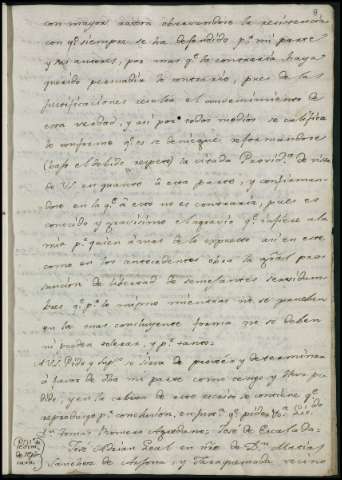 con mayor razon observandose la resistencia
con qe. siempre se ha defendido pr. mi parte
y sus autores, por mas qe. la contraria haya
querido persuadir lo contrario, pues de las
justificaciones resulta el convencimiento de
esta verdad, y asi por todos medios se califica
de conforme qe. es se deniegue reformandose
(bajo el debido respeto) la citada Provida. de vista
de V. en quanto á esta parte, y confirman-
dose en lo qe. á esto no es contraria, pues es
conocido y gravisimo el agravio qe. infiere a la
mia pr. quien á mas de lo expuesto asi en este
como en los antecedentes obra la gral pre-
suncion de libertad de semejantes servidum-
bres qe. pr. lo mismo mientras no se prueben
en la mas concluyente forma no se deben
ni pueden tolerar, y pr. tanto:
A V. Pido y supco. se sirva de proveér y determinar
á favor de dha mi parte como tengo y llevo pe-
dido, y en la cabeza de este escrito se contiene qe.
reproduzco pr. conclusion, en justa. qe. pido
Dn. Tomas Romero José de Escalada
José Adrian Leal en nre. de Dn. Matias
Sanchez de y vecino